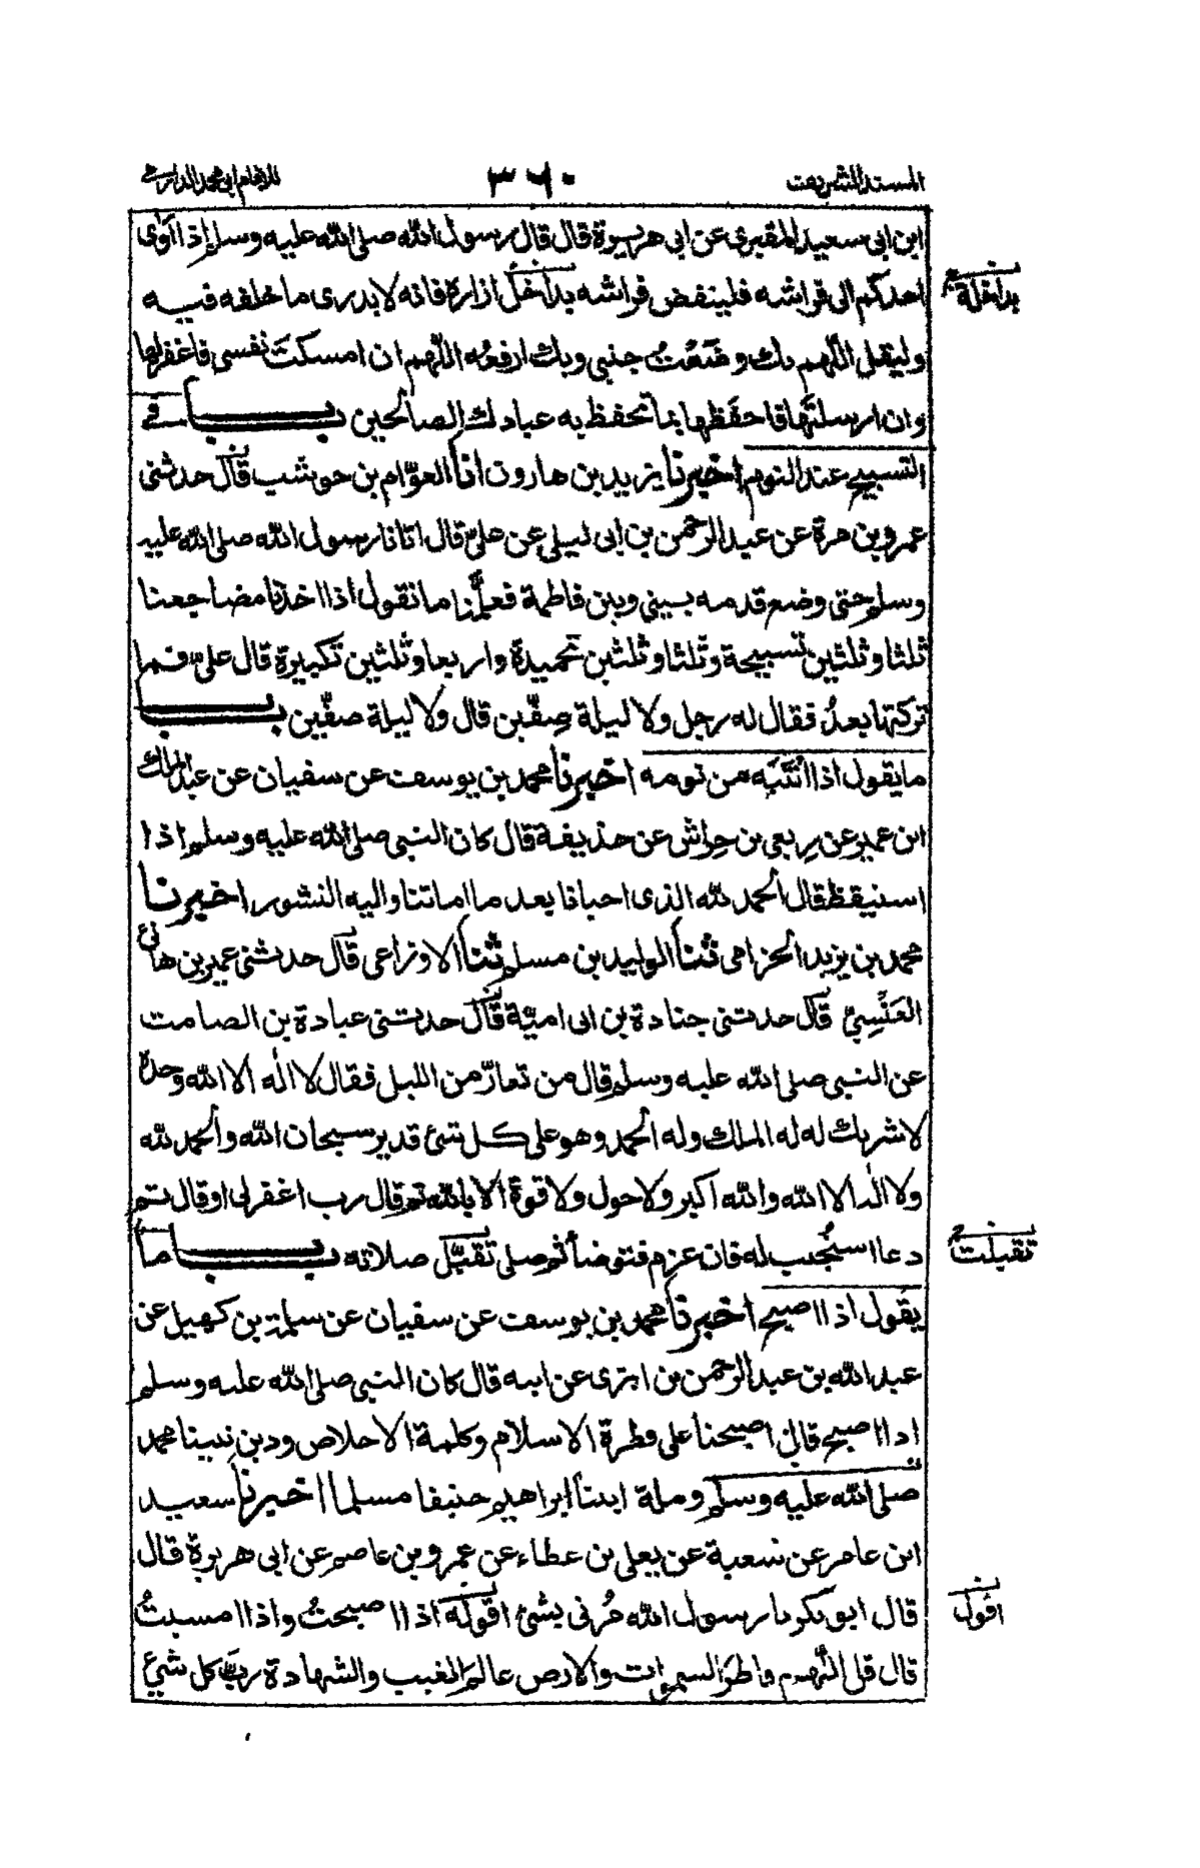 المسند الشريف ٣٦٠ للامام ابى محمد الدارمى
ابن ابى سعيد المقبرى عن ابى هريرة قال قال رسول الله صلى الله عليه وسلم إذا اوٰى
احدكم الى فراشه فلينفض فراشه بداخل ازاره فانه لا يدرى ما خلفه فيه
بداخلة
وليقل اللّهم بك وضَعْتُ جنبى وبك ارفعُه اللّهم ان امسكتَ نفسى فاغفرلها
وان ارسلتَها فاحفَظها بما تحفظ به عبادك الصالحين بــاب فى
التسبيح عند النوم اخبرنا يزيد بن هارون انا العوّام بن حوشب قال حدثنى
عمرو بن مرة عن عبد الرحمن بن ابى ليلى عن علىّ قال اتانا رسول الله صلى الله عليه
وسلم حتى وضع قدمه بينى وبين فاطمة فعلّمنا ما نقول اذا اخذنا مضاجعنا
ثلثا وثلثين تسبيحة وثلثا وثلثين تحميدة واربعا وثلثين تكبيرة قال علىّ فما
تركتها بعدُ فقال له رجل ولا ليلة صِفّين قال ولا ليلة صفّين بــاب
ما يقول اذا انتَبَه من نومه اخبرنا محمد بن يوسف عن سفيان عن عبد الملك
ابن عمير عن رِبعى بن حِراش عن حذيفة قال كان النبى صلى الله عليه وسلم اذا
استيقظ قال الحمد لله الذى احيانا بعد ما اماتنا واليه النشور اخبرنا
محمد بن يزيد الحزامى ثنا الوليد بن مسلم ثنا الاوزاعى قال حدثنى عمير بن هانئ
العَنْسِىّ قال حدثنى جنادة بن ابى اميّة قال حدثنى عبادة بن الصامت
عن النبى صلى الله عليه وسلم قال من تعارّ من الليل فقال لا الٰه الا الله وحده
لا شريك له له الملك وله الحمد وهو على كل شئ قدير سبحان الله والحمد لله
ولا الٰه الا الله والله اكبر ولا حول ولا قوة الا بالله ثم قال رب اغفرلى او قال ثم
دعا استُجيب له فان عزم فتوضأ ثم صلى تقبّل صلاته بــاب ما
تقبلت
يقول اذا اصبح اخبرنا محمد بن يوسف عن سفيان عن سلمة بن كهيل عن
عبد الله بن عبد الرحمن بن ابزى عن ابيه قال كان النبى صلى الله عليه وسلم
اذا اصبح قال اصبحنا على فطرة الاسلام وكلمة الاخلاص ودين نبينا محمد
صلى الله عليه وسلم وملة ابينا ابراهيم حنيفا مسلما اخبرنا سعيد
ابن عامر عن شعبة عن يعلى بن عطاء عن عمرو بن عاصم عن ابى هريرة قال
قال ابو بكر يا رسول الله مُرنى بشئ اقوله اذا اصبحتُ واذا امسيتُ
اقول
قال قل اللّهم فاطرَ السمٰوات والارض عالمَ الغيب والشهادة ربَّ كل شئ